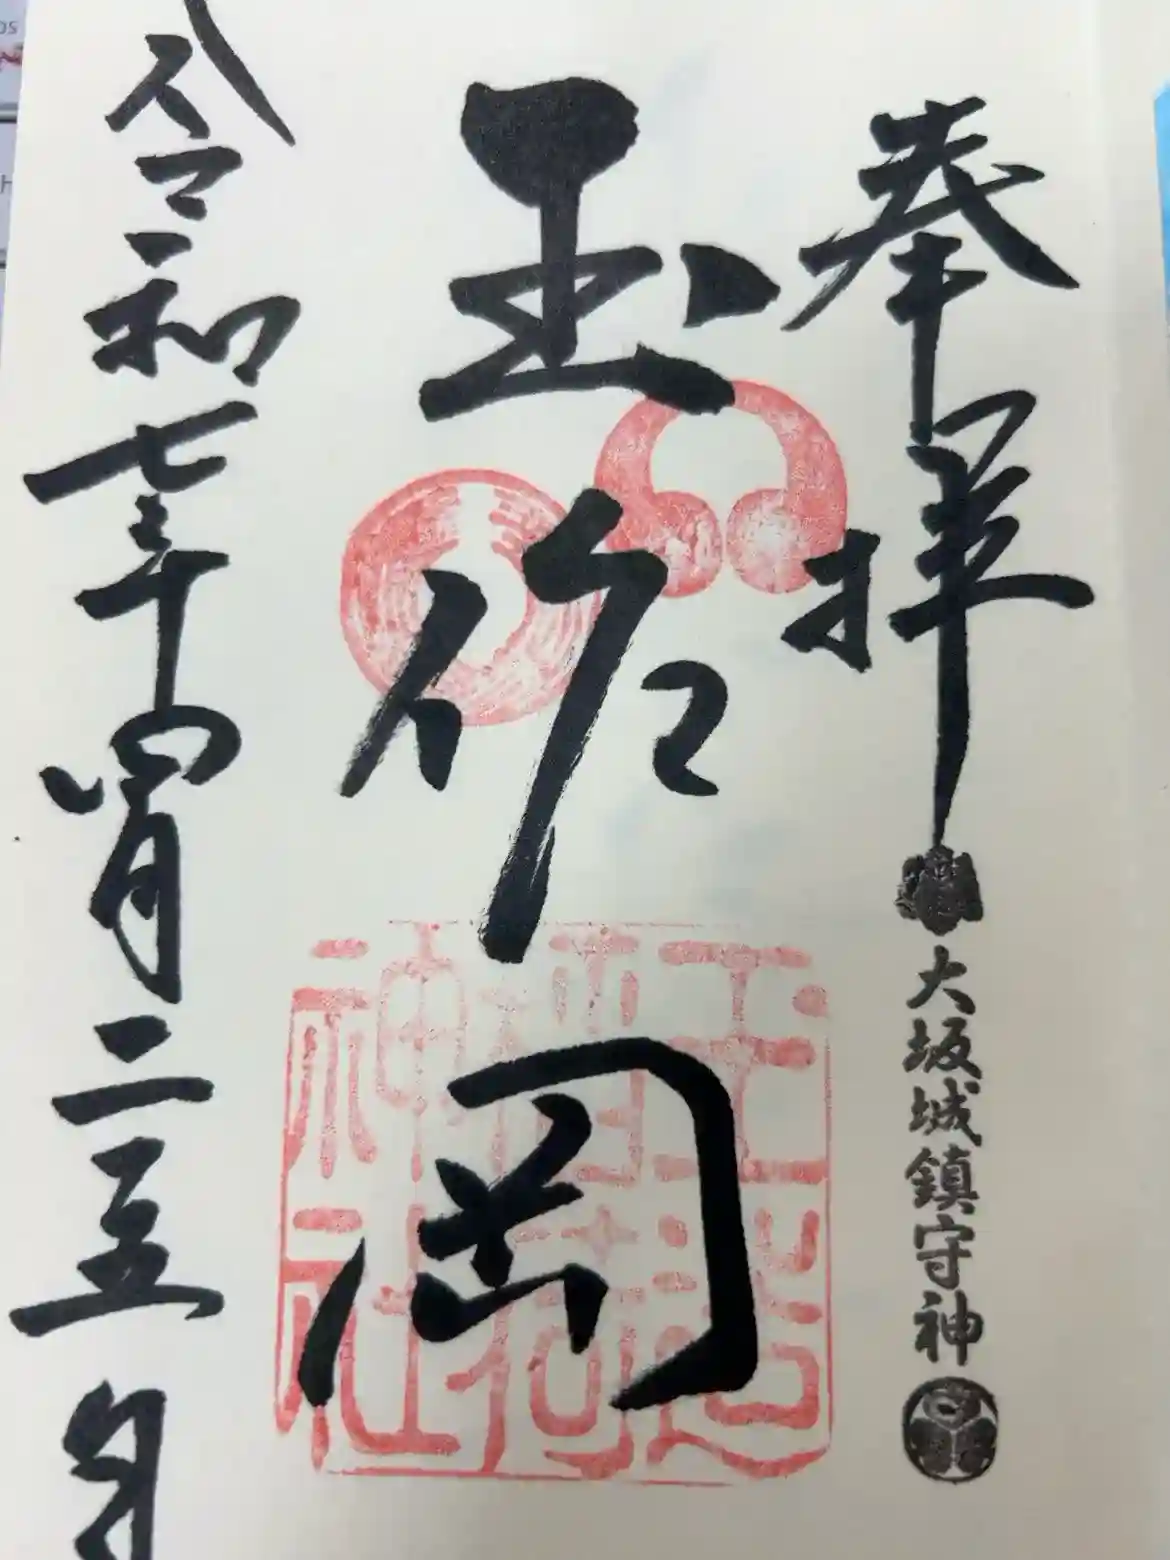 奉拝
大坂城鎮守神
玉作岡
玉造稲荷神社
令和七年四月二五日